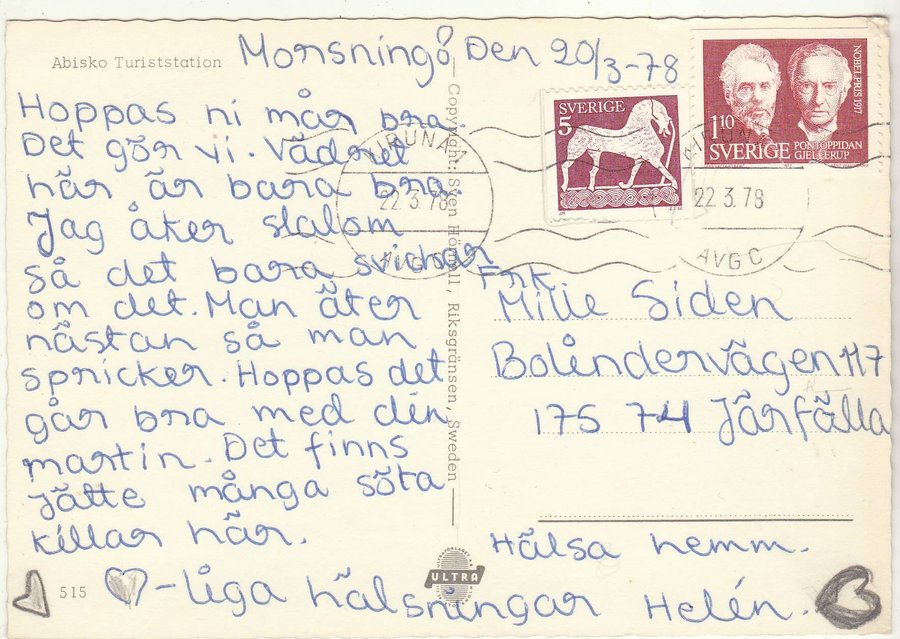 Abisko Turiststation
Morsning! Den 20/3-78
Hoppas ni mår bra.
Det gör vi. Vädret
här är bara bra.
Jag åker slalom
så det bara svichar
om det. Man äter
nästan så man
spricker. Hoppas det
går bra med din
martin. Det finns
jätte många söta
killar här.
515
-liga hälsningar Helén.
Copyright: Sven Hörnell, Riksgränsen, Sweden
ULTRA
SVERIGE
5
NOBELPRIS 1977
1.10
SVERIGE
PONTOPPIDAN
GJELLERUP
KIRUNA 1
22.3.78
AVG C
KIRUNA
22.3.78
AVG C
Frk
Millie Siden
Bolindervägen 117
175 74 Järfälla
Hälsa hemm.